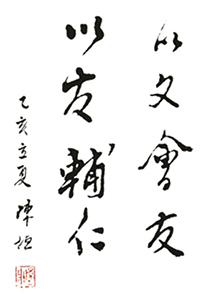 以文會友
以友輔仁
乙亥立夏 陳垣